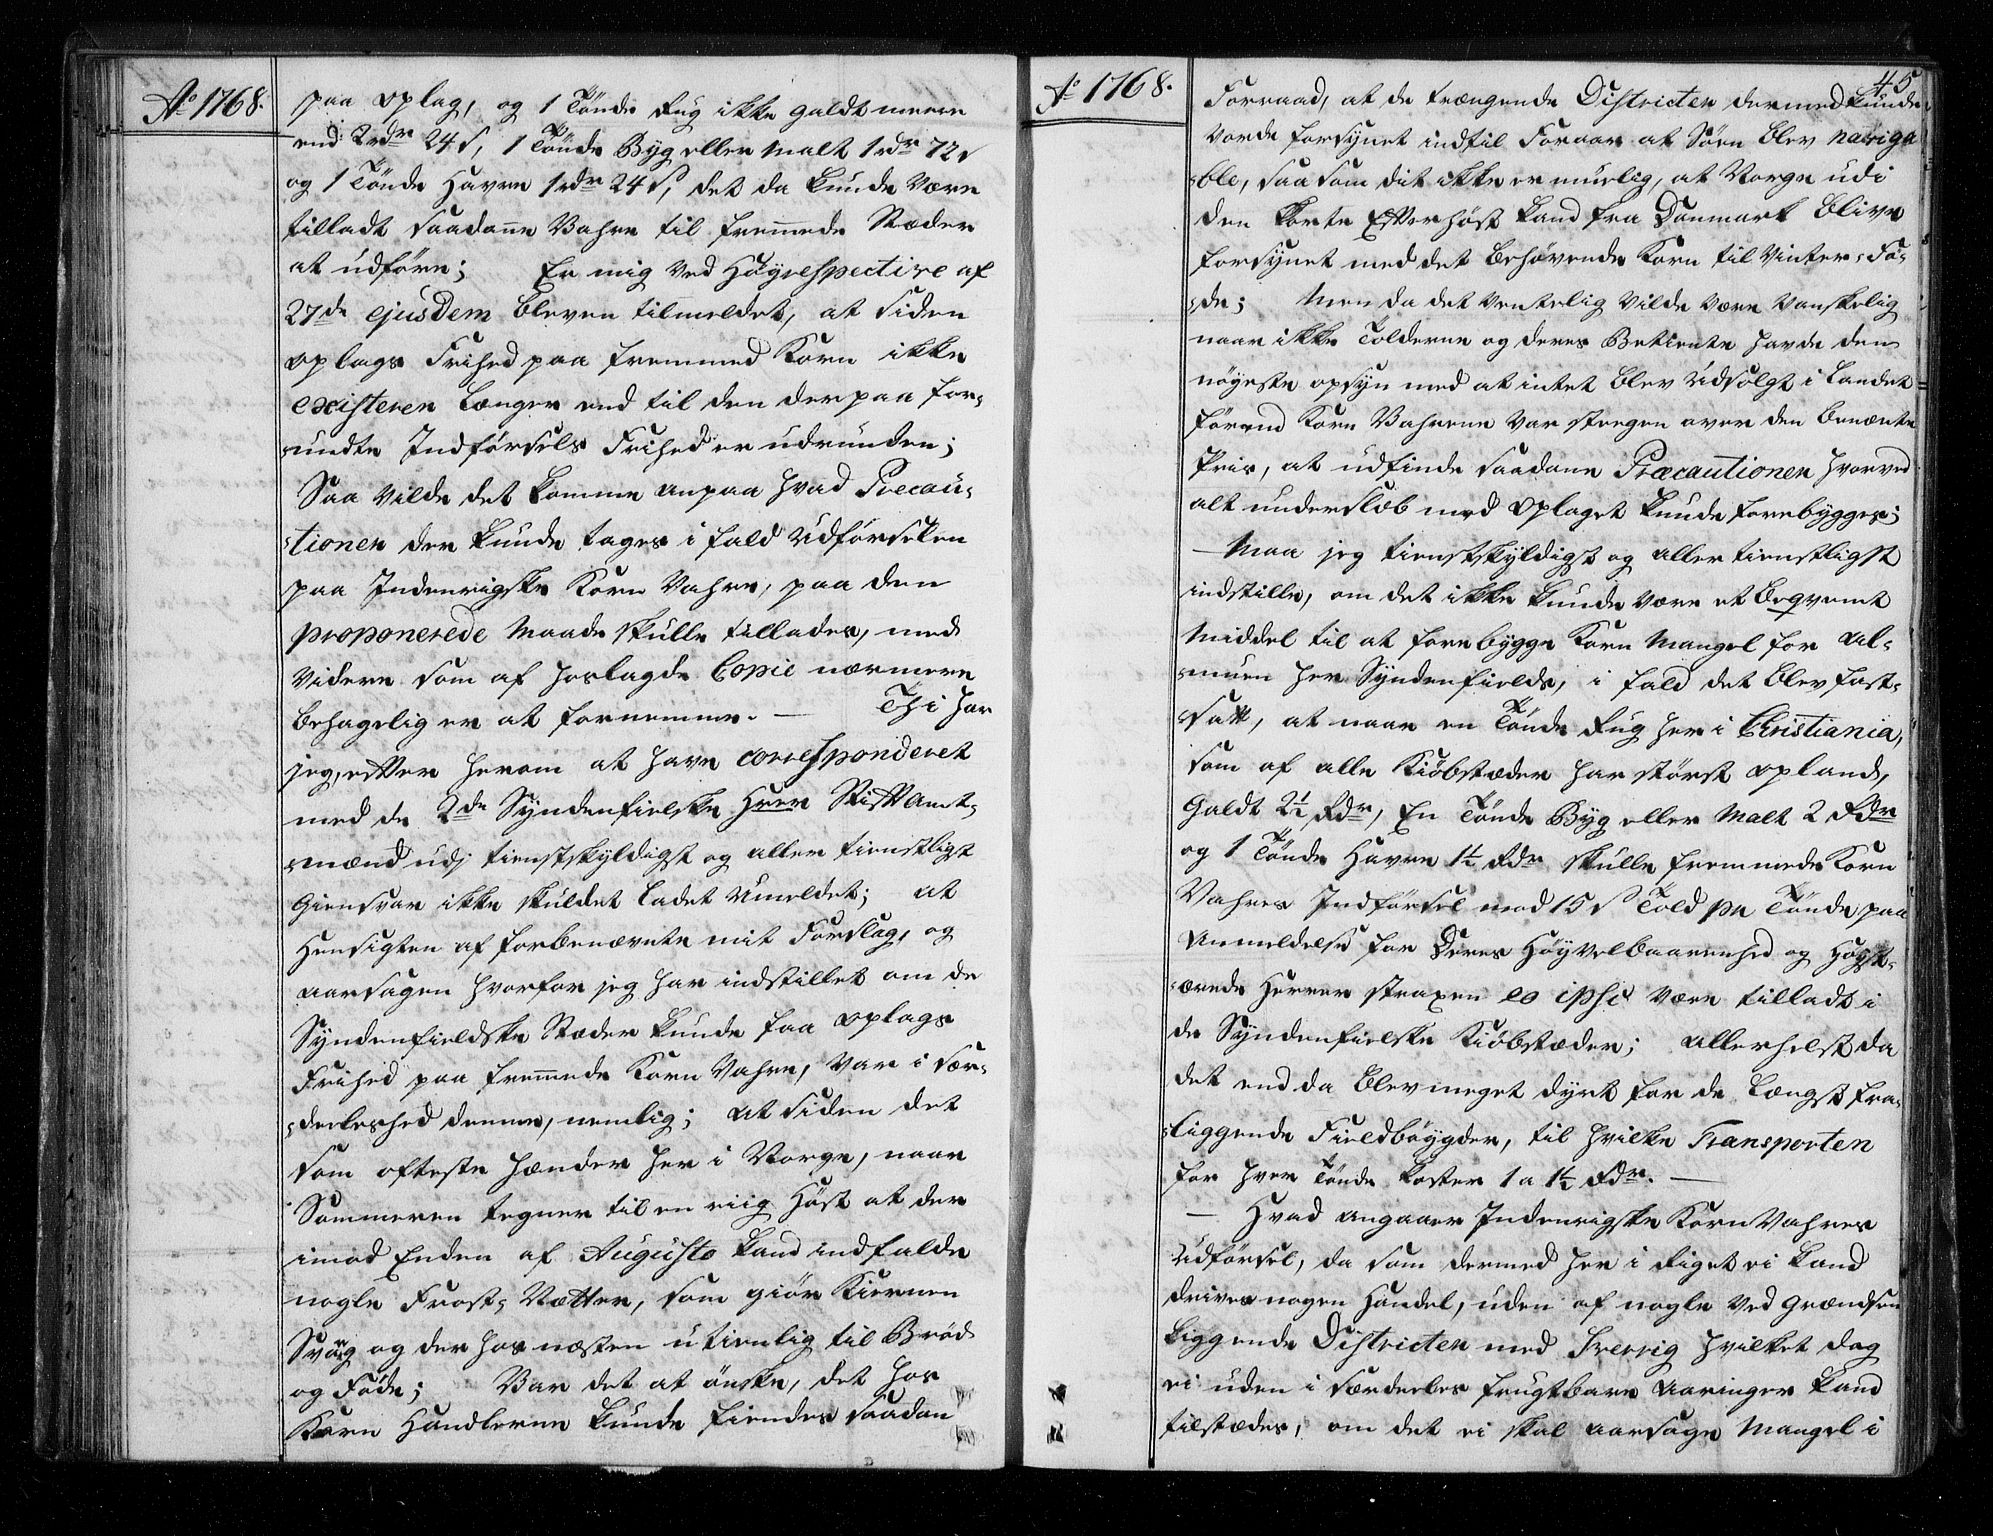 Ao 1768.
paa oplag, og 1 Tönde Rug ikke galdt meere
end 2rdr 24 s, 1 Tönde Byg eller Malt 1rdr 72 s
og 1 Tönde Havre 1rdr 24 s, det da kunde være
tilladt saadanne Vahre til fremmede Stæder
at udföre; Er mig ved Höyrespective af
27de ejusdem bleven tilmeldet, at siden
oplags Frihed paa fremmed Korn ikke
existerer længer end til den derpaa for-
undte Indförsels Frihed er udrunden;
Saa vilde det komme anpaa hvad Precau-
tioner der kunde tages i fald Udförselen
paa Indenrigske Korn Vahre, paa den
proponerede Maade skulle tillades, med
videre som af hoslagde Copie nærmere
behagelig er at fornemme. — Thi har
jeg, efter herom at have correspondered
med de 2de Syndenfielske Hrer Stiftamt-
mænd udj tienstskyldigst og aller tienstligst
Giensvar ikke skuldet ladet Umeldet; at
Hensigten af forbenævnte mit Forslag, og
aarsagen hvorfor jeg har indstillet om de
Syndenfieldske Stæder kunde faa oplags
Frihed paa fremmede Korn Vahre, var i sær-
deeleshed denne, nemlig; at siden det
som ofteste hænder her i Norge, naar
Sommeren tegner til en riig Höst at der
imod Enden af Augusto kand indfalde
nogle Frost-Nætter, som giör Kiernen
Svang og der hos næsten utienlig til Bröd
og Föde; Var det at önske, det hos
Korn Handlerne kunde fiendes saadan
Ao 1768.
45
Forraad, at de trængende Districter dermed kunde
vorde forsynet indtil Foraar at Söen blev naviga-
ble, saasom dit ikke er muelig, at Norge udi
den korte Efterhöst kand fra Danmark blive
forsynet med det behövende Korn til Vinter-Fö-
de; Men da det ventelig vilde være vanskelig
naar ikke Tolderne og deres Betiente havde den
nöyeste opsyn med at intet blev Udsolgt i Landet
förend Korn Vahrene var stregen over den benænte
Priis, at udfinde saadane Præcautioner hvorved
alt underslæb med Oplaget kunde forebygges;
— Maa jeg tienstskyldigst og aller tienstligst
indstille, om det ikke kunde være et beqvemt
Middel til at forebygge Korn Mangel for Al-
muen her Syndenfields, i fald det blev fast-
satt, at naar en Tönde Rug her i Christiania,
som af alle Kiöbstæder har störst opland,
Galdt 2½ Rdr, En Tönde Byg eller Malt 2 Rdr
og 1 Tönde Havre 1½ Rdr skulle fremmede Korn
Vahres Indförsel mod 15 s Told pr Tönde paa
Anmeldelse for Deres Höyvelbaarenhed og Höyst-
ærede Herrer straxen eo ipso være tilladt i
de Syndenfielske Kiöbstæder; allerhelst da
det end da blev meget dyrt for de længst fra-
liggende Fieldböygder, til hvilke Transporten
for hver Tönde koster 1 a 1½ Rdr. —
— Hvad angaaer Indenrigske Korn Vahres
Udförsel, da som dermed her i Riget ei kand
drives nogen Handel, uden af nogle ved Grændsen
liggende Districter med Sverrig hvilket dog
ei uden i særdeeles frugtbare Aaringer kand
tilstædes, om det ei skal aarsage Mangel i